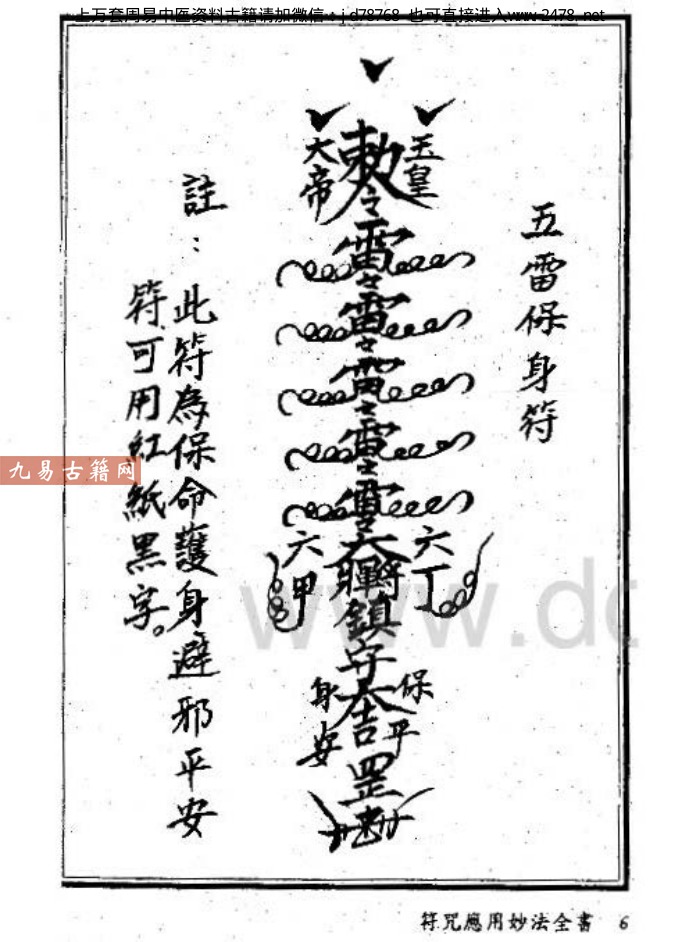 上万套周易中医资料古籍请加微信：jd78768 也可直接进入www.2478.net
五雷保身符
玉皇
勅令
大帝
雷
雷
雷
雷
雷
六丁
六甲
鎮守
保平
身安
大吉
罡
註：此符為保命護身避邪平安
符可用紅紙黑字。
九易古籍网
www.dc
符咒應用妙法全書 6